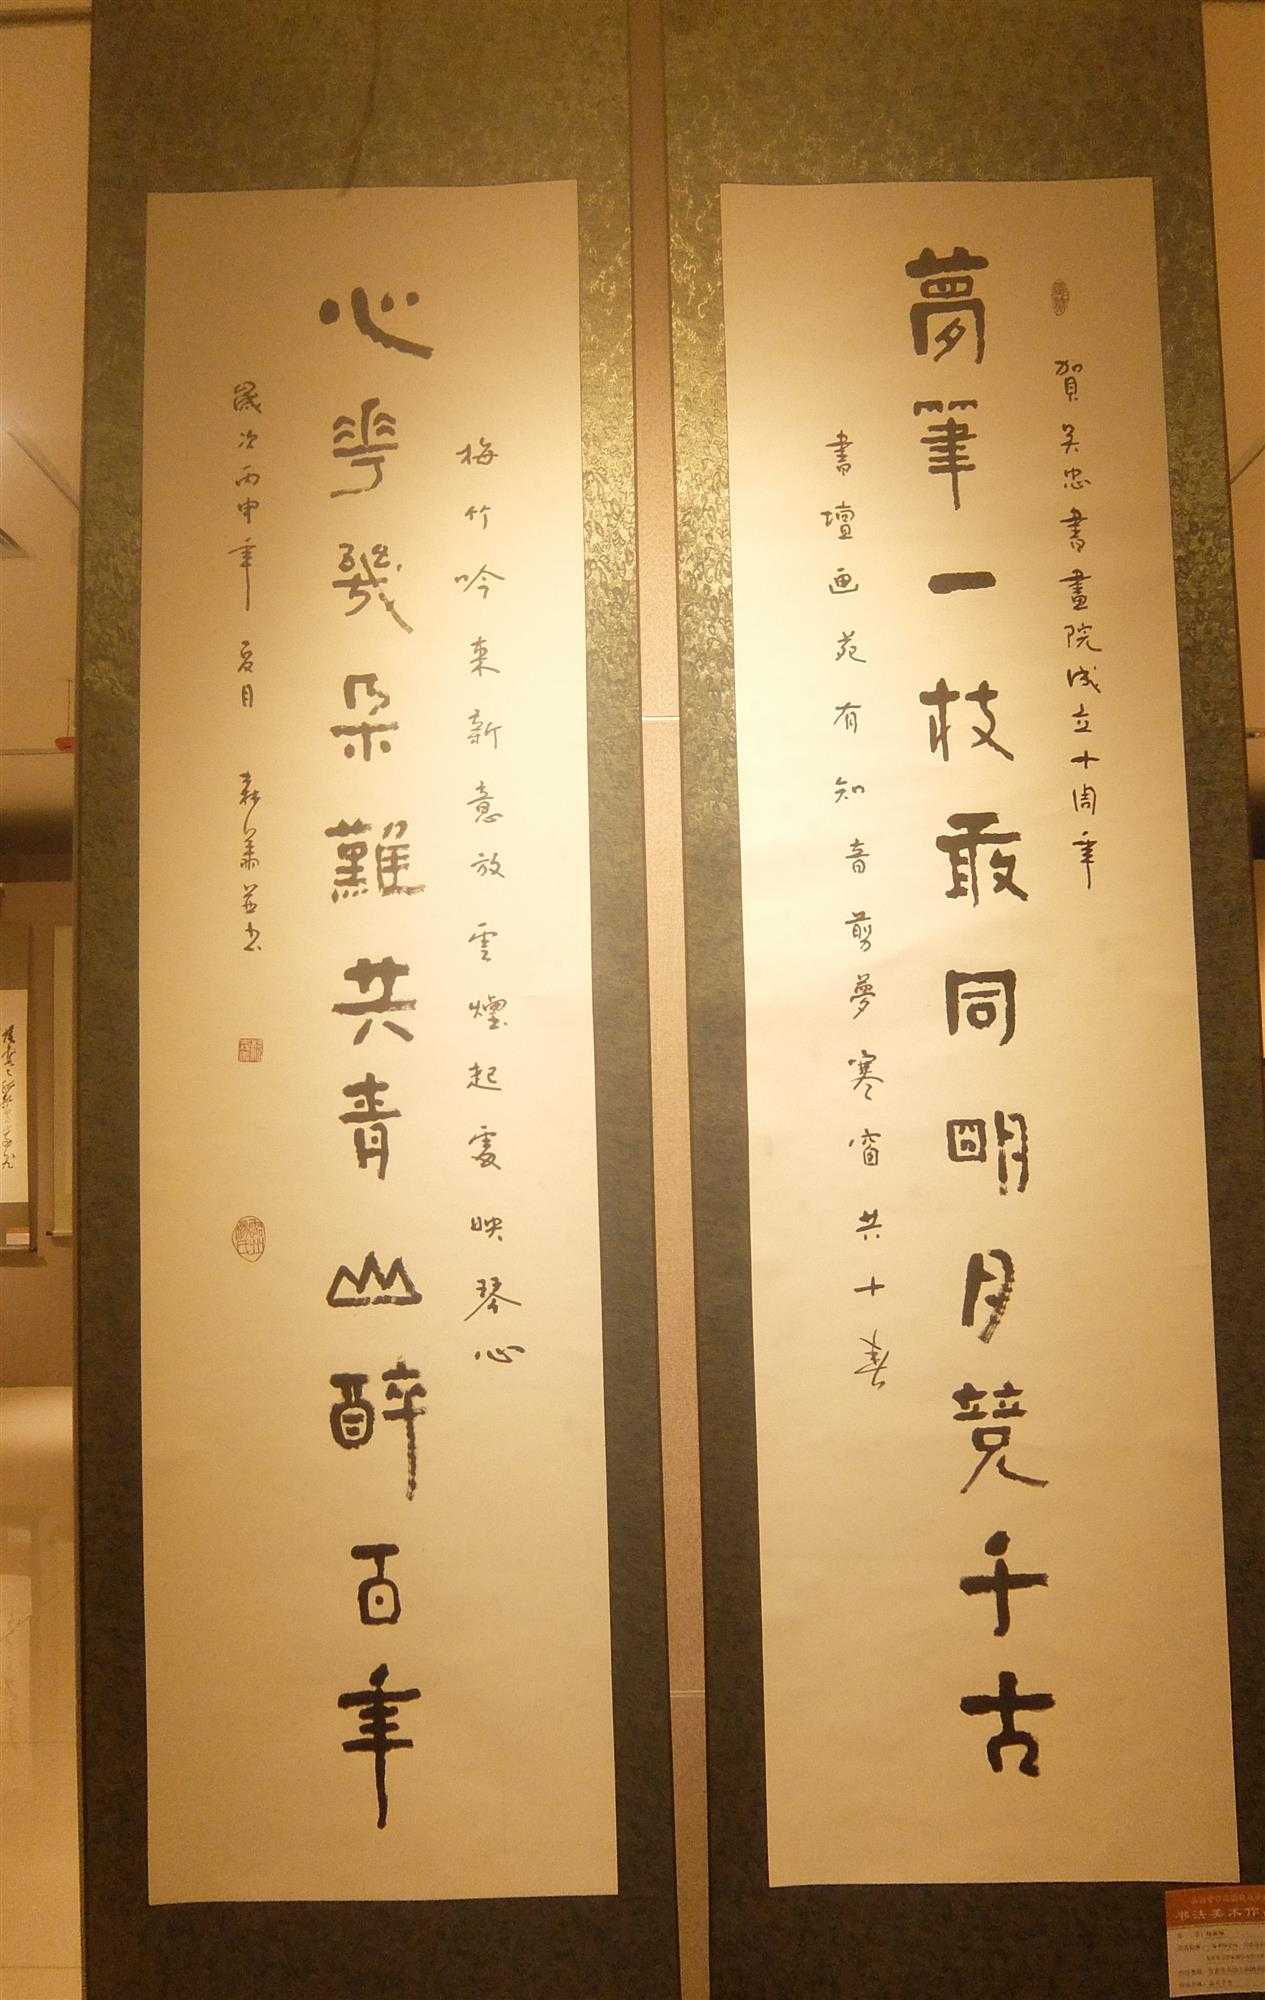 賀吴忠書畫院成立十周年
夢筆一枝敢同明月競千古
書壇画苑有知音剪夢寒窗共十春
梅竹吟来新意放雲煙起處映琴心
心華幾朵難共青山醉百年
歲次丙申年夏月
书法美术作